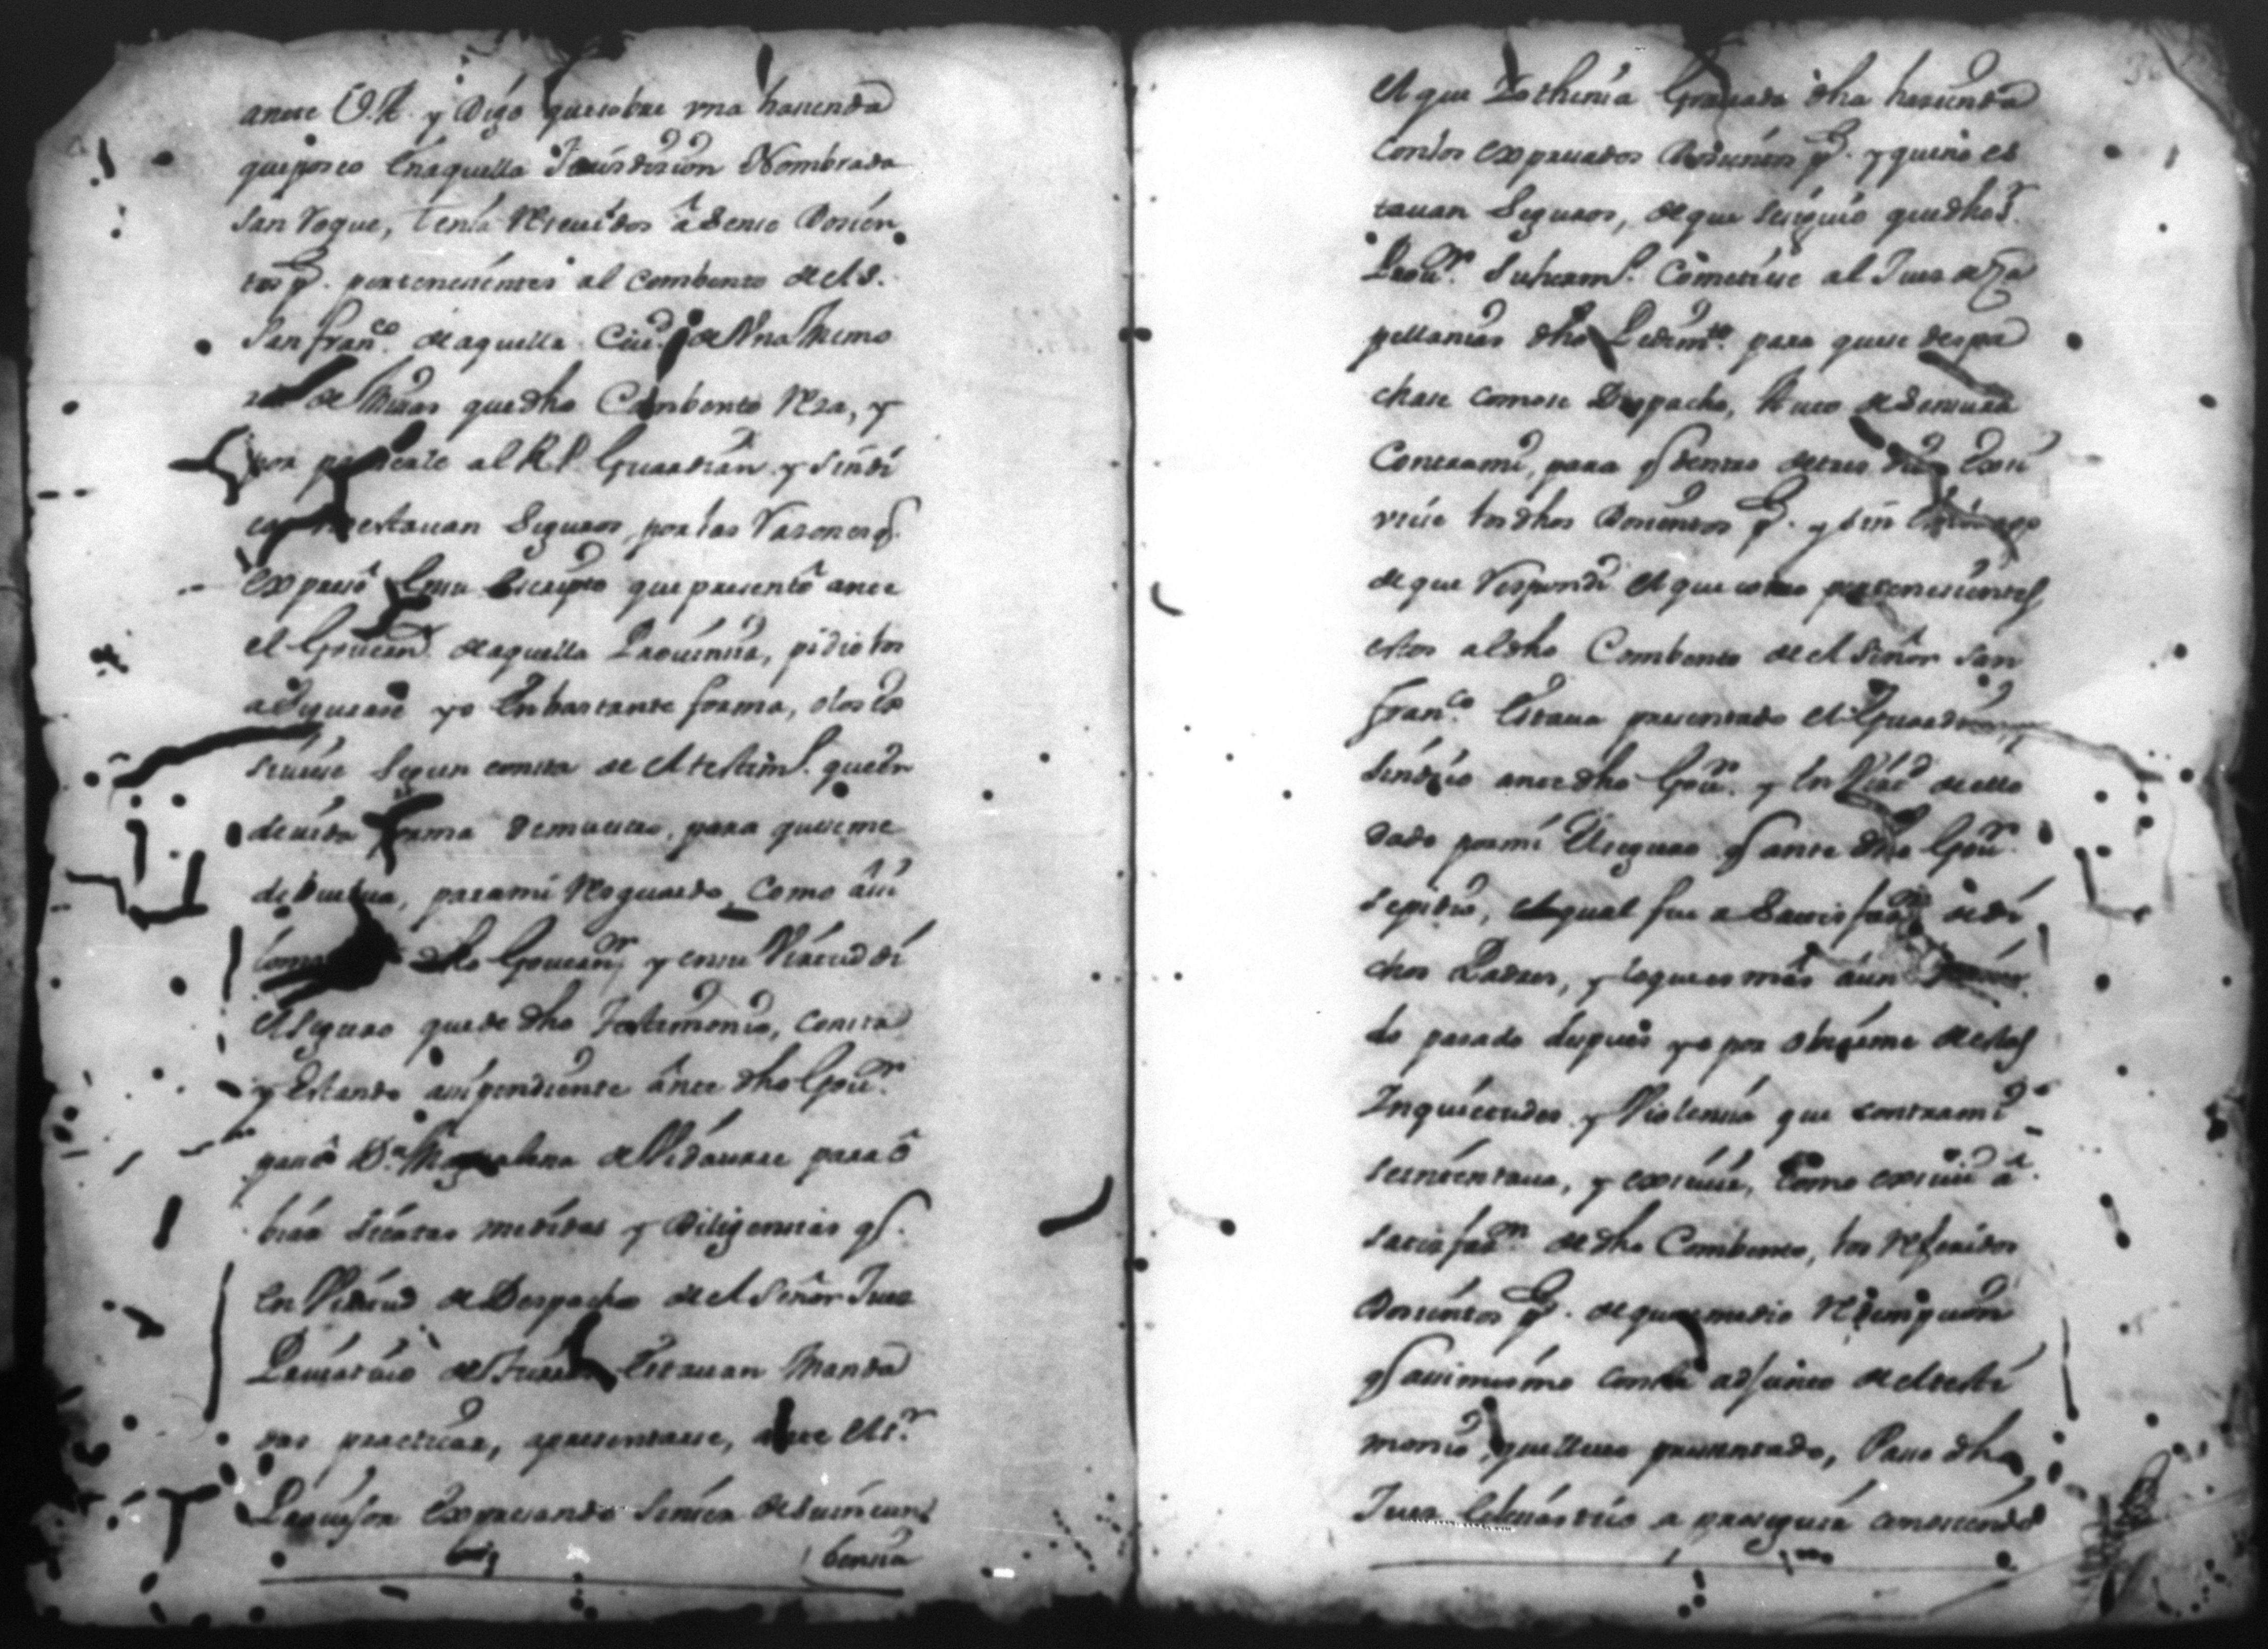 antte V.A. y Digo que sobre vna hasienda
que poseo En aquella Jurisdision Nombrada
San Roque, tenia Resevidos â Senso Dosien
tos p.s pertenesientes al combento de el S.
San fran.co de aquella Ciu.d de Vna Memo
ria de Misas que dho Combento Resa, y
por pareserle al R P Guardian y Sindi
co no estavan Seguros, por las Rasones q.
Expresô En su Escripto que presentô ante
el Governd.or de aquella Provinsia, pidio los
asegurase yo En bastante forma, o los Ex
siviese Segun consta de el testim.o que En
devida forma demuestro, para que se me
debuelva, para mi Resguardo, Como asi
dho Governd.or y en su Virtud di
el Seguro que de dho Testimonio, Consta
y Estando asi pendiente ânte dho Gov.r
pasô D.a Magdalena de Vidaurre para o
biar Siertas medidas y Diligensias q.
En Virtud de Despacho de el Señor Juez
Privativo de tierras Estavan Manda
das practicar, apresentarse, ante el S.r
Provisor Expresando Siniestra
bensia
el que Io thenia Gravada dha hasienda
con los expresados Dosientos p.s y que no es
tavan Seguros, de que Se siguio que dho S.r
Prov.r Se cometiese al Juez de Ca
pellanias dho Pedim.to para que se despa
chase como se Despacho, Auto de Sensura
Contra mi, para q dentro de tres dias Exsi
viese los dhos Dosientos p.s y sin Embargo
de que Respondi el que como pertenesientes
estos al dho Combento de el Señor San
fran.co Estava presentado el Guardian, y
Sindico ante dho Gov.r y En Virt.d de ello
dado por mi El seguro q ante dho Gov.r
Se pidio, el qual fue a Satisfas.on de di
chos Padres, y lo que es mas aun
do pasado despues yo por obiarme de estas
Inquietudes y Violensia que contra mi
Se intentava, y exsivi, Como exsivi â
Satisfas.on de dho Combento, los Referidos
Dosientos p.s de que medio Redempsion
q asi mismo consta adjunto de el testi
monio, que llevo presentado, Paso dho
Juez Eclesiastico a proseguir conosiendo